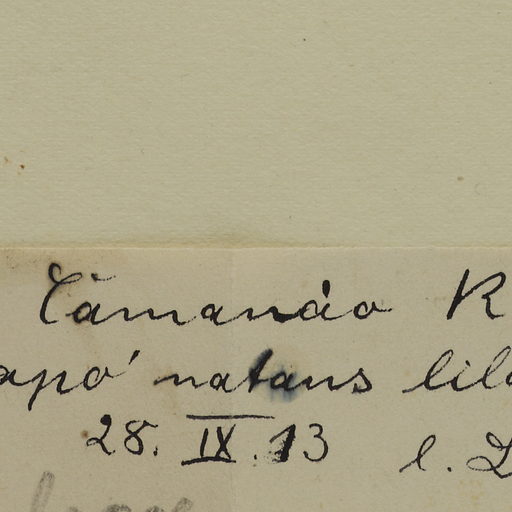 Cămanáo R
apó natans lil
28. IX. 13 l. D